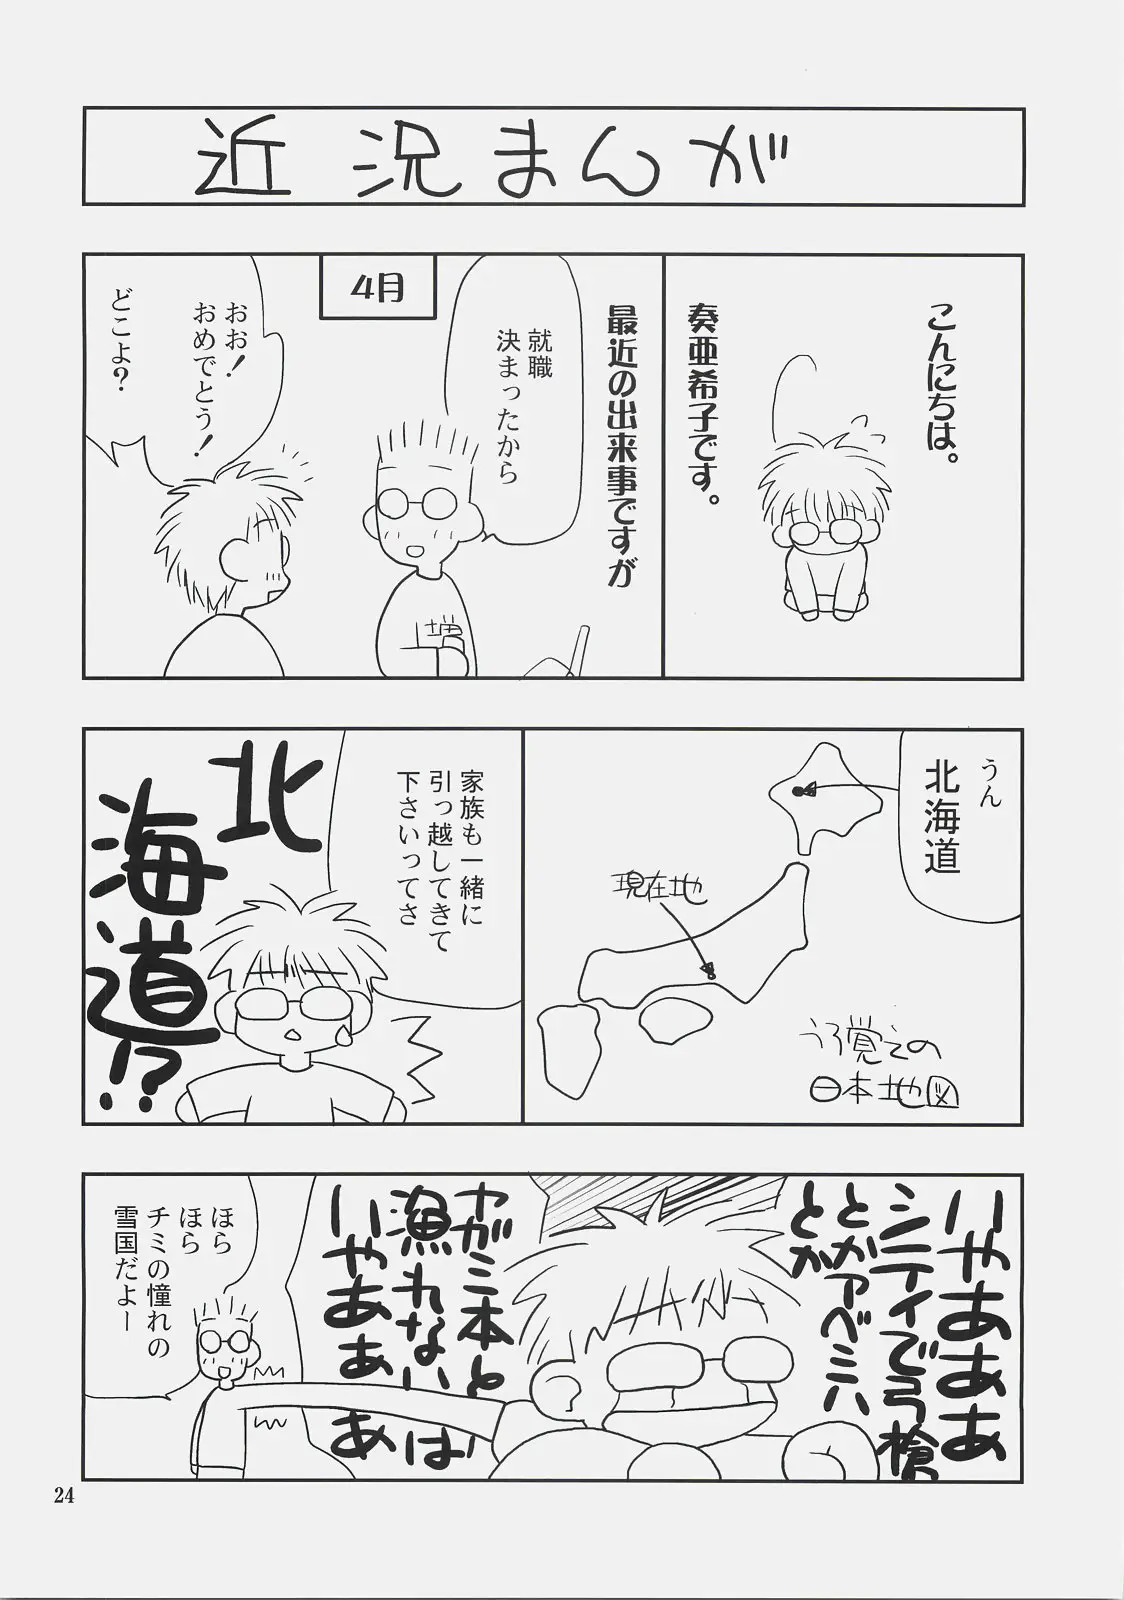 近況まんが
こんにちは。
奏亜希子です。
最近の出来事ですが
4月
就職
決まったから
増
おお！
おめでとう！
どこよ？
うん
北海道
現在地
うろ覚えの
日本地図
家族も一緒に
引っ越してきて
下さいってさ
北
海道!?
いやあああ
シティで弓槍
とかアベミハ
とか
ヤガミ本と
漁れないは
いやああ
あ
ほら
ほら
チミの憧れの
雪国だよー
24